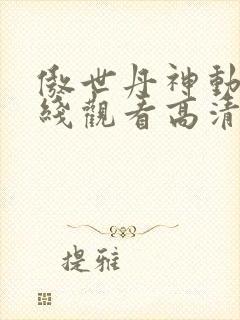 傲世丹神動
綫觀看高清
提雅